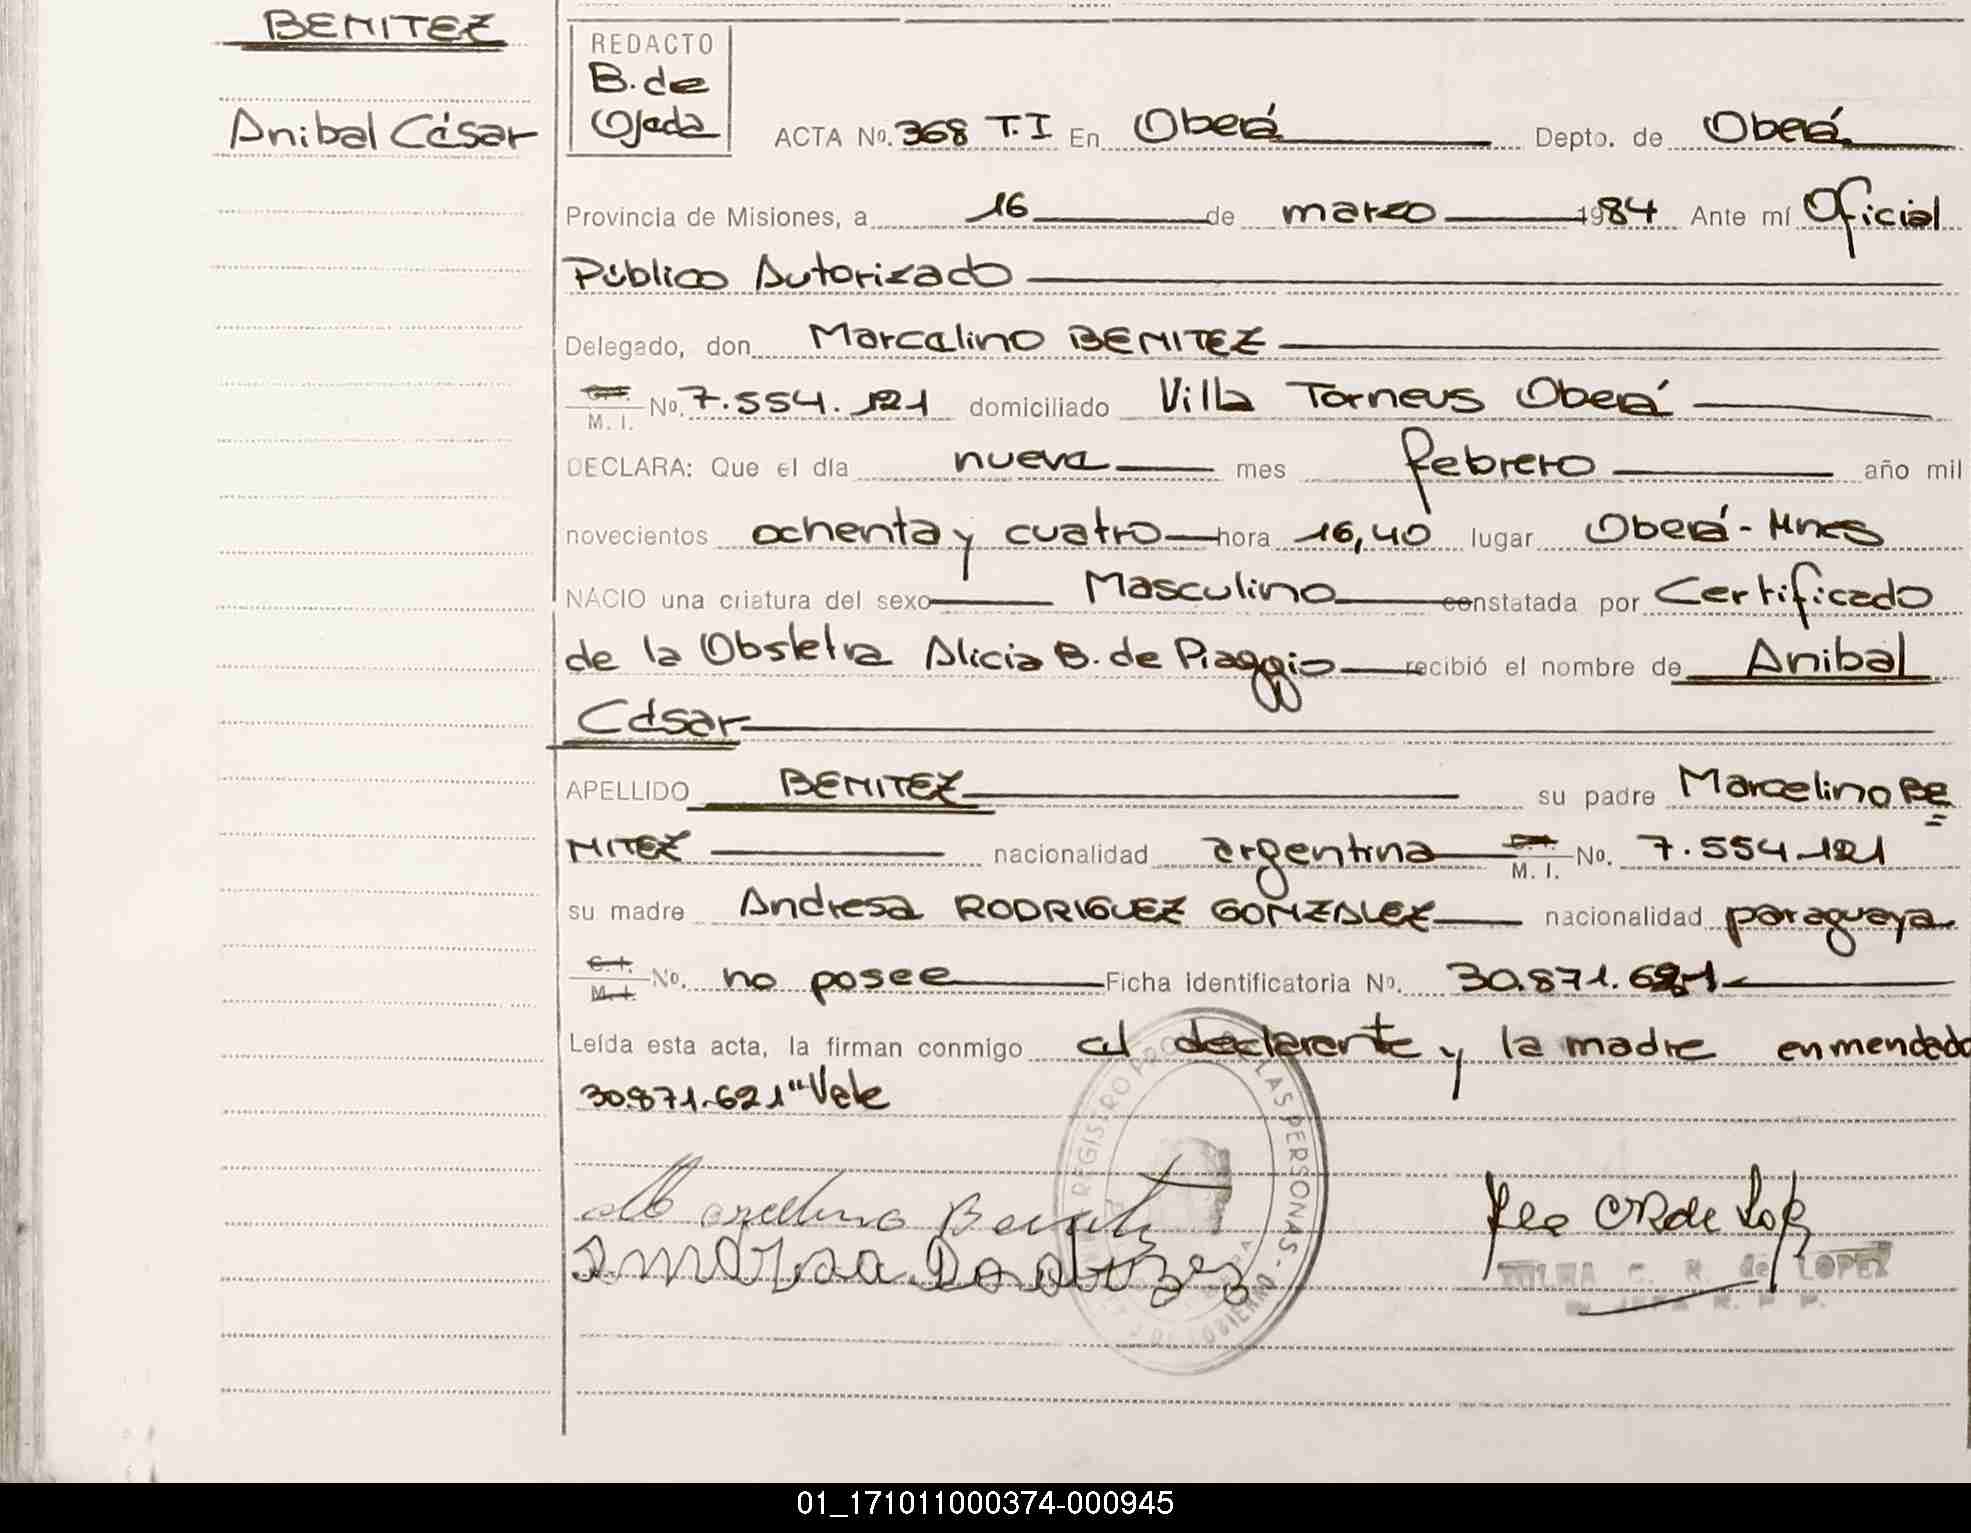 BENITEZ
Anibal César
REDACTO
B. de
Ojeda
ACTA Nº. 368 T.I En Oberá Depto. de Oberá
Provincia de Misiones, a 16 de marzo 1984 Ante mí Oficial
Público Autorizado
Delegado, don Marcelino BENITEZ
C.I.
M. I. Nº. 7.554.121 domiciliado Villa Torneus Oberá
DECLARA: Que el día nueve mes febrero año mil
novecientos ochenta y cuatro hora 16,40 lugar Oberá - Mnes
NACIO una criatura del sexo Masculino constatada por Certificado
de la Obstetra Alicia B. de Piaggio recibió el nombre de Anibal
César
APELLIDO BENITEZ su padre Marcelino BE
NITEZ nacionalidad argentina M. I. Nº. 7.554.121
su madre Andresa RODRIGUEZ GONZALEZ nacionalidad paraguaya
C.I.
M.I. Nº. no posee Ficha identificatoria Nº. 30.871.621
Leída esta acta, la firman conmigo el declarante y la madre enmendado
30.871.621" Vale
Marcelino Benitez
REGISTRO DE LAS PERSONAS
C. R. de LOPEZ
01_171011000374-000945